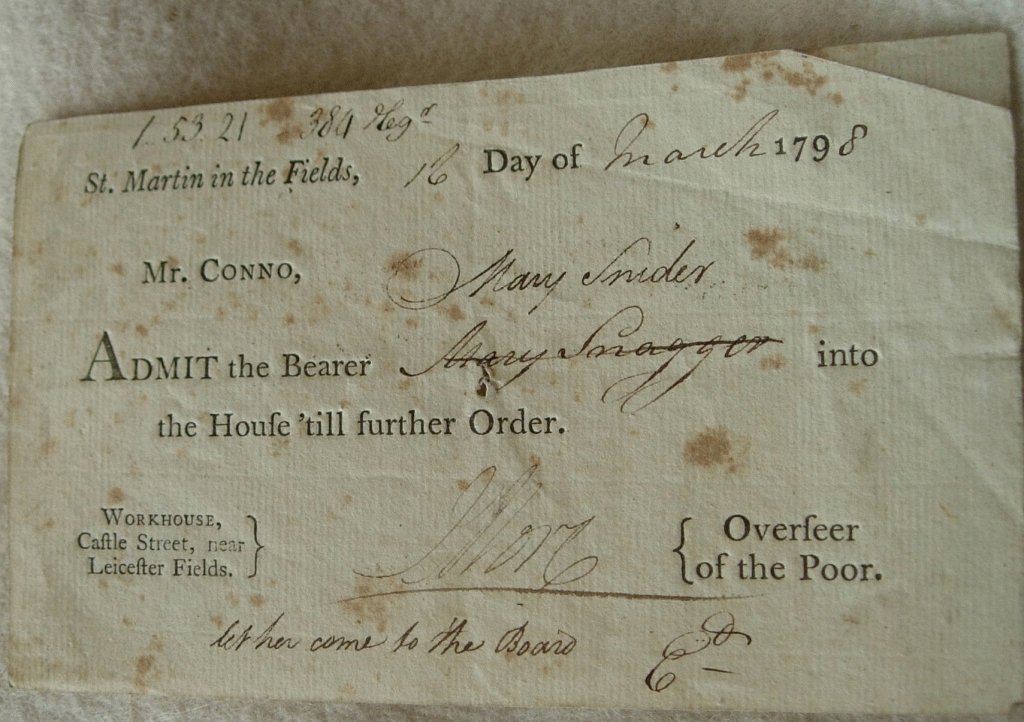 1. 53. 21 384 Regr
St. Martin in the Fields, 16 Day of March 1798
Mr. CONNO, Mary Snider
ADMIT the Bearer Mary Snaggor into
the Houſe 'till further Order.
WORKHOUSE,
Caſtle Street, near
Leiceſter Fields.
Overſeer
of the Poor.
let her come to the Board